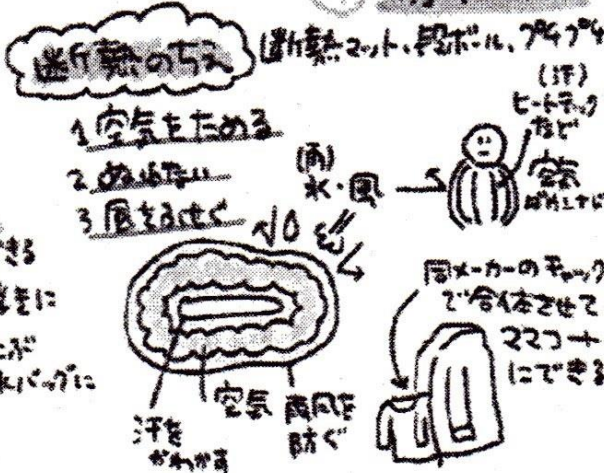 断熱のちえ
断熱マット、段ボール、プチプチ
1 空気をためる
2 ぬれない
3 風をふせぐ
(汗)
ヒートテック
など
空気
(雨)
水・風
きる
汗を
かわかす
空気
雨風を
防ぐ
同メーカーのチャック
で合体させて
ママコート
にできる